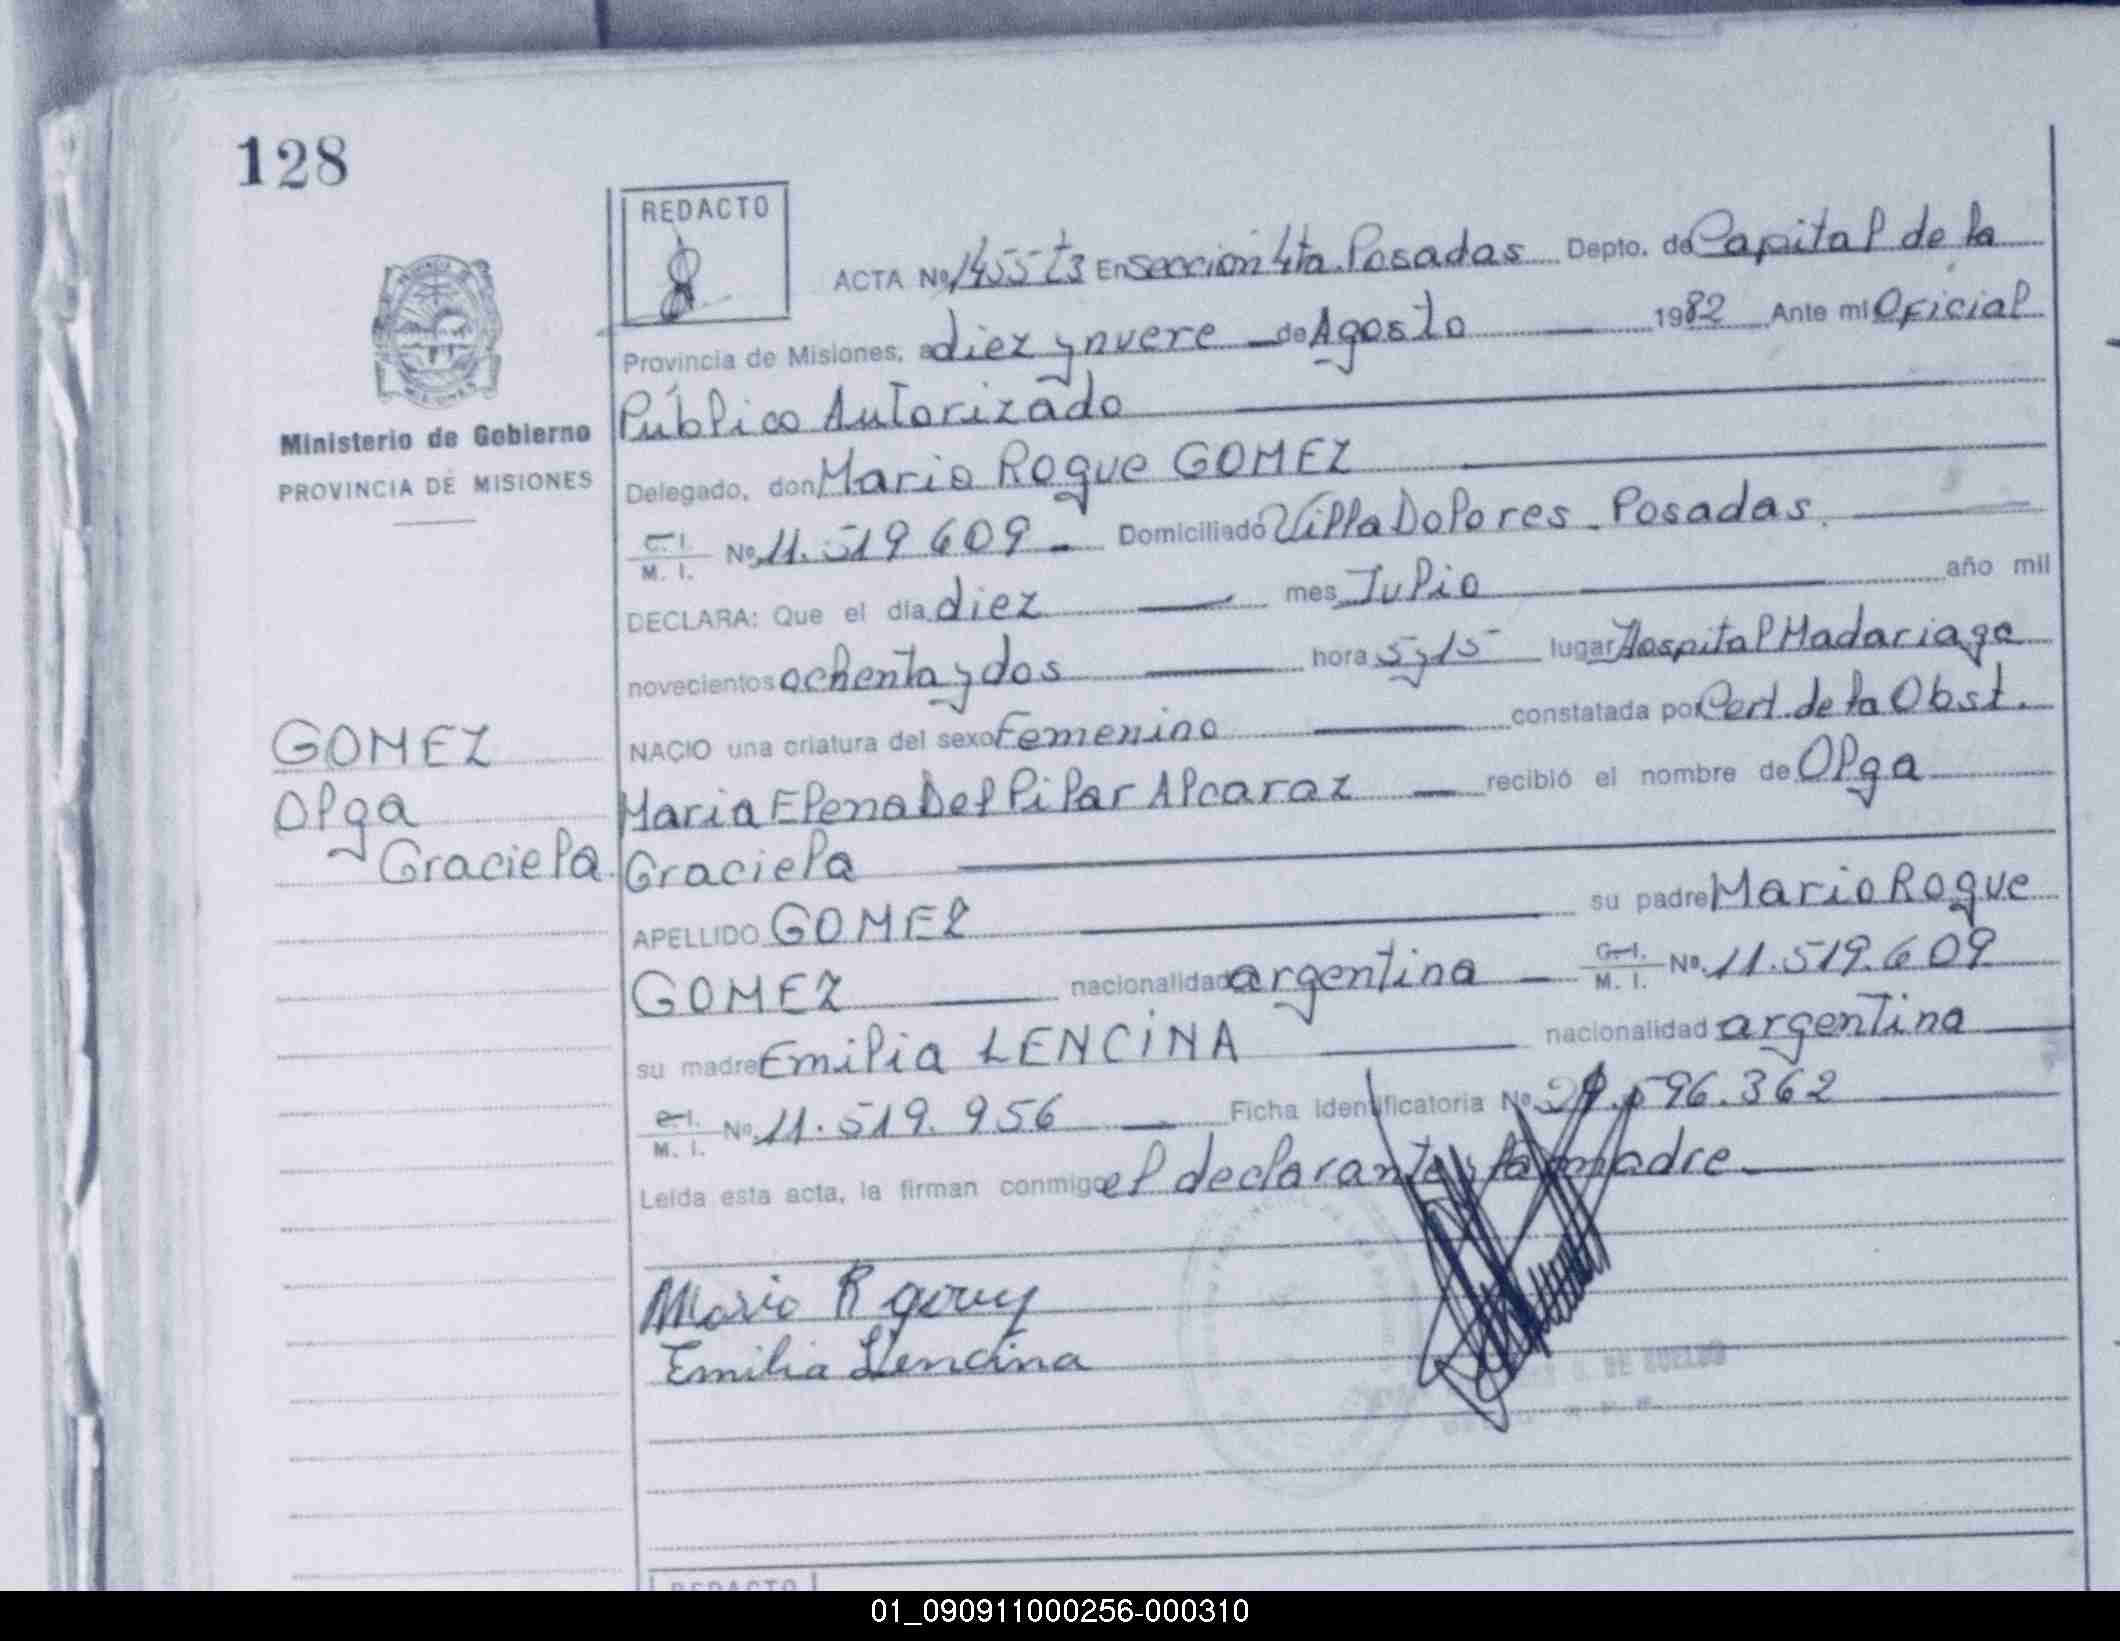 128
REDACTO
ACTA Nº 1455 t3 En Sección 4ta. Posadas Depto. de Capital de la
Provincia de Misiones, a diez y nueve de Agosto 1982 Ante mi Oficial
Público Autorizado
Ministerio de Gobierno
PROVINCIA DE MISIONES
Delegado, don Mario Roque GOMEZ
C. I. M. I. Nº 11.519 609 Domiciliado Villa Dolores - Posadas.
DECLARA: Que el día diez mes Julio año mil
novecientos ochenta y dos hora 5 y 15 lugar Hospital Madariaga
NACIO una criatura del sexo Femenino constatada por Cert. de la Obst.
Maria Elena Del Pilar Alcaraz recibió el nombre de Olga
Graciela
GOMEZ
Olga
Graciela.
APELLIDO GOMEZ su padre Mario Roque
GOMEZ nacionalidad argentina C. I. M. I. Nº 11.519.609
su madre Emilia LENCINA nacionalidad argentina
C. I. M. I. Nº 11.519.956 Ficha Identificatoria Nº 29.596.362
Leída esta acta, la firman conmigo el declarante y la madre
Mario R gomez
Emilia Llencina
DE SUELDO
REDACTO
01_090911000256-000310